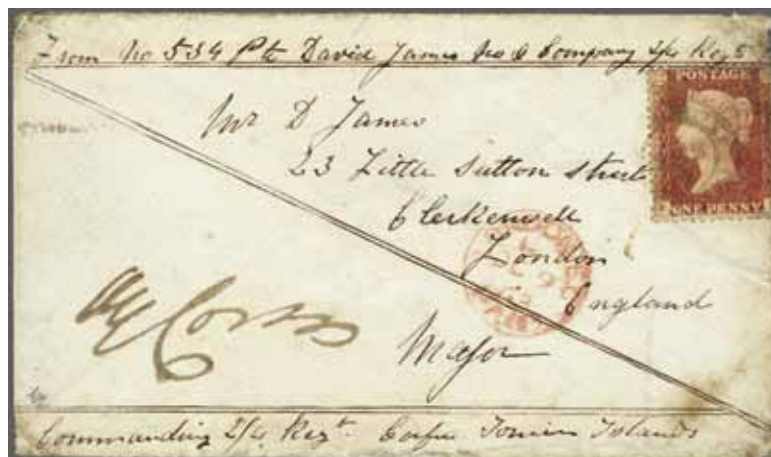 From No 534 Pte David James No 6 Company 2/4 Regt
POSTAGE
Mr D James
23 Little Sutton Street
Clerkenwell
London
England
ONE PENNY
Major
Commanding 2/4 Regt. Corfu Ionian Islands